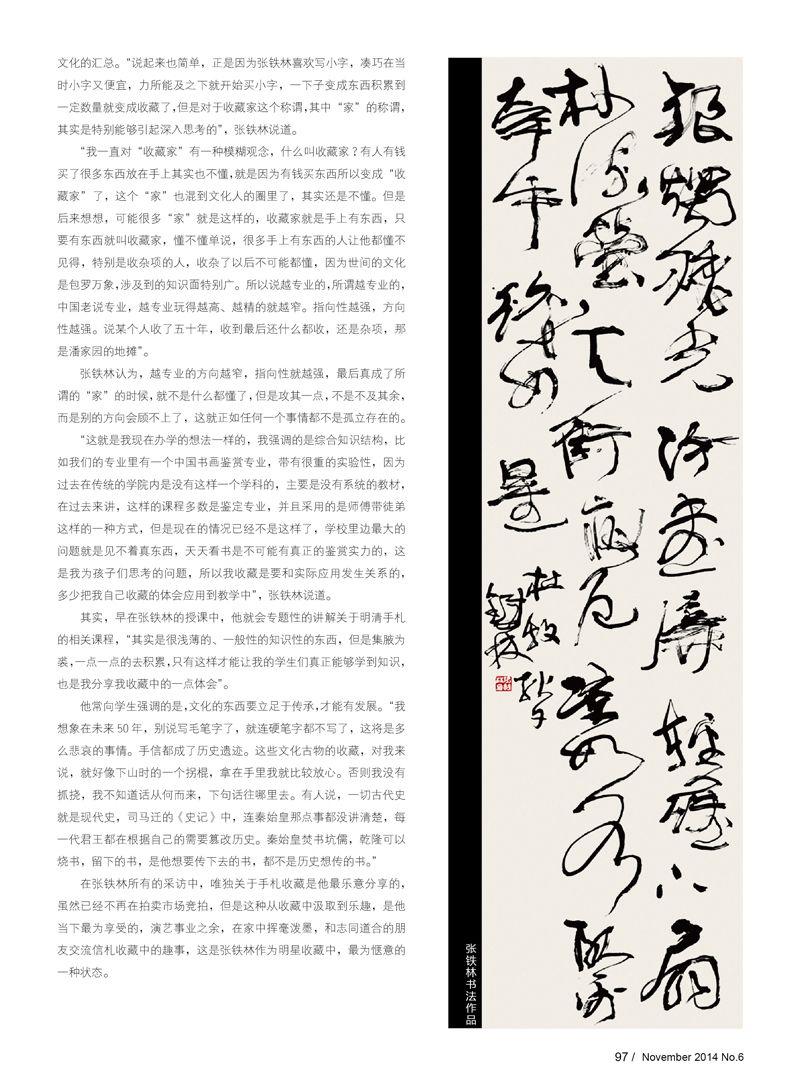 文化的汇总。“说起来也简单，正是因为张铁林喜欢写小字，凑巧在当
时小字又便宜，力所能及之下就开始买小字，一下子变成东西积累到
一定数量就变成收藏了，但是对于收藏家这个称谓，其中“家”的称谓，
其实是特别能够引起深入思考的”，张铁林说道。
“我一直对“收藏家”有一种模糊观念，什么叫收藏家？有人有钱
买了很多东西放在手上其实也不懂，就是因为有钱买东西所以变成“收
藏家”了，这个“家”也混到文化人的圈里了，其实还是不懂。但是
后来想想，可能很多“家”就是这样的，收藏家就是手上有东西，只
要有东西就叫收藏家，懂不懂单说，很多手上有东西的人让他都懂不
见得，特别是收杂项的人，收杂了以后不可能都懂，因为世间的文化
是包罗万象，涉及到的知识面特别广。所以说越专业的，所谓越专业的，
中国老说专业，越专业玩得越高、越精的就越窄。指向性越强，方向
性越强。说某个人收了五十年，收到最后还什么都收，还是杂项，那
是潘家园的地摊”。
张铁林认为，越专业的方向越窄，指向性就越强，最后真成了所
谓的“家”的时候，就不是什么都懂了，但是攻其一点，不是不及其余，
而是别的方向会顾不上了，这就正如任何一个事情都不是孤立存在的。
“这就是我现在办学的想法一样的，我强调的是综合知识结构，比
如我们的专业里有一个中国书画鉴赏专业，带有很重的实验性，因为
过去在传统的学院内是没有这样一个学科的，主要是没有系统的教材，
在过去来讲，这样的课程多数是鉴定专业，并且采用的是师傅带徒弟
这样的一种方式，但是现在的情况已经不是这样了，学校里边最大的
问题就是见不着真东西，天天看书是不可能有真正的鉴赏实力的，这
是我为孩子们思考的问题，所以我收藏是要和实际应用发生关系的，
多少把我自己收藏的体会应用到教学中”，张铁林说道。
其实，早在张铁林的授课中，他就会专题性的讲解关于明清手札
的相关课程，“其实是很浅薄的、一般性的知识性的东西，但是集腋为
裘，一点一点的去积累，只有这样才能让我的学生们真正能够学到知识，
也是我分享我收藏中的一点体会”。
他常向学生强调的是，文化的东西要立足于传承，才能有发展。“我
想象在未来 50 年，别说写毛笔字了，就连硬笔字都不写了，这将是多
么悲哀的事情。手信都成了历史遗迹。这些文化古物的收藏，对我来
说，就好像下山时的一个拐棍，拿在手里我就比较放心。否则我没有
抓挠，我不知道话从何而来，下句话往哪里去。有人说，一切古代史
就是现代史，司马迁的《史记》中，连秦始皇那点事都没讲清楚，每
一代君王都在根据自己的需要篡改历史。秦始皇焚书坑儒，乾隆可以
烧书，留下的书，是他想要传下去的书，都不是历史想传的书。”
在张铁林所有的采访中，唯独关于手札收藏是他最乐意分享的，
虽然已经不再在拍卖市场竞拍，但是这种从收藏中汲取到乐趣，是他
当下最为享受的，演艺事业之余，在家中挥毫泼墨，和志同道合的朋
友交流信札收藏中的趣事，这是张铁林作为明星收藏中，最为惬意的
一种状态。
银烛秋光冷画屏轻罗小扇
扑流萤天街夜色凉如水卧看
牵牛织女星
杜牧秋夕
铁林
张铁林书法作品
97 / November 2014 No.6